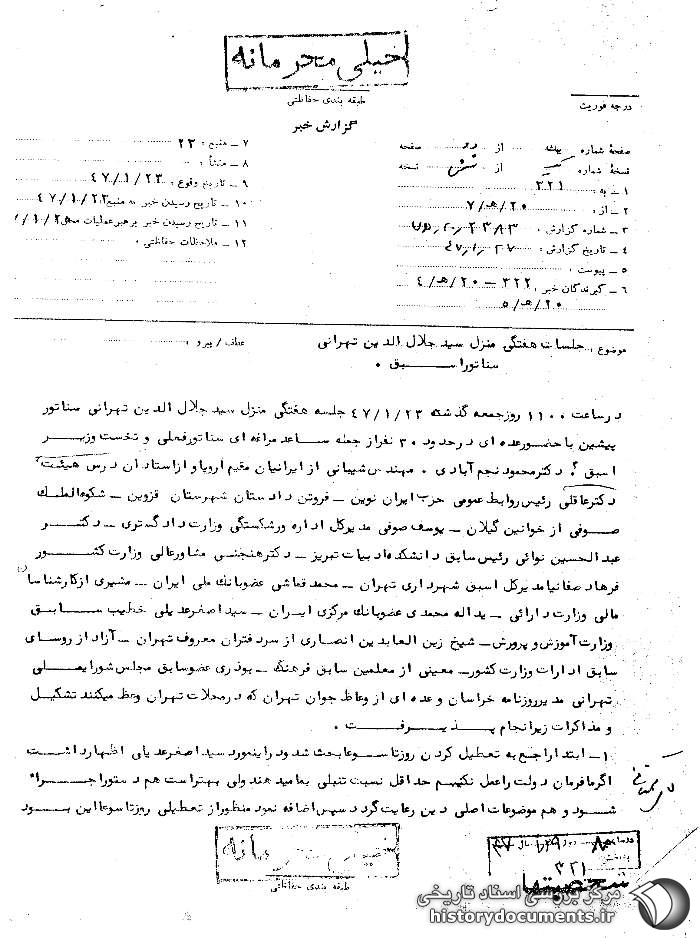 خیلی محرمانه
طبقه بندی حفاظتی
درجه فوریت
گزارش خبر
صفحهٔ شماره یک از دو صفحه
نسخهٔ شماره یک از شش نسخه
۱ ــ به : ۳۲۱
۲ ــ از : ۲۰/ هـ/ ۷
۳ ــ شماره گزارش :
۴ ــ تاریخ گزارش : ۴۷/۱/۲۷
۵ ــ پیوست :
۶ ــ گیرندگان خبر : ۳۲۲ – ۲۰/ هـ/ ۴
۲۰/ هـ/ ۵
۷ ــ منبع : ۲۳
۸ ــ منشأ :
۹ ــ تاریخ وقوع : ۴۷/۱/۲۳
۱۰ ــ تاریخ رسیدن خبر به منبع ۴۷/۱/۲۳
۱۱ ــ تاریخ رسیدن خبر برهبر عملیات محل
۱۲ ــ ملاحظات حفاظتی :
موضوع : جلسات هفتگی منزل سید جلال الدین تهرانی
سناتور اسبق ۰
عطف / پیرو :
در ساعت ۱۱۰۰ روز جمعه گذشته ۴۷/۱/۲۳ جلسه هفتگی منزل سید جلال الدین تهرانی سناتور
پیشین با حضور عده ای در حدود ۳۰ نفر از جمله ساعد مراغه ای سناتور فعلی و نخست وزیر
اسبق ۰ دکتر محمود نجم آبادی ۰ مهندس شیبانی از ایرانیان مقیم اروپا و از استادان درس هیئت
دکتر عاقلی رئیس روابط عمومی حزب ایران نوین ــ فروتن دادستان شهرستان قزوین ــ شکوه الملک
صوفی از خوانین گیلان ــ یوسف صوفی مدیرکل اداره ورشکستگی وزارت دادگستری ــ دکتر
عبدالحسین نوائی رئیس سابق دانشکده ادبیات تبریز ــ دکتر هنجنی مشاور عالی وزارت کشور
فرهاد صفانیا مدیرکل اسبق شهرداری تهران ــ محمد قماشی عضو بانک ملی ایران ــ مشیری از کارشناسان
مالی وزارت دارائی ــ یداله محمدی عضو بانک مرکزی ایران ــ سید اصغر عدیلی خطیب سابق
وزارت آموزش و پرورش ــ شیخ زین العابدین انصاری از سردفتران معروف تهران ــ آزاد از روسای
سابق ادارات وزارت کشور ــ معینی از معلمین سابق فرهنگ ــ بوذری عضو سابق مجلس شورایملی
تهرانی مدیر روزنامه خراسان و عده ای از وعاظ جوان تهران که در محلات تهران وعظ میکنند تشکیل
و مذاکرات زیر انجام پذیرفت ۰
۱ ــ ابتدا راجع به تعطیل کردن روز تاسوعا بحث شد و در اینمورد سید اصغر عدیلی اظهار داشت
اگر ما فرمان دولت را عمل نکنیم حداقل نسبت تنبلی بما میدهند ولی بهتر است هم دستور اجراء
شود و هم موضوعات اصلی دین رعایت گردد سپس اضافه نمود منظور از تعطیلی روز تاسوعا این بود
خیلی محرمانه
طبقه بندی حفاظتی
۳۲۱
مرکز بررسی اسناد تاریخی
historydocuments.ir